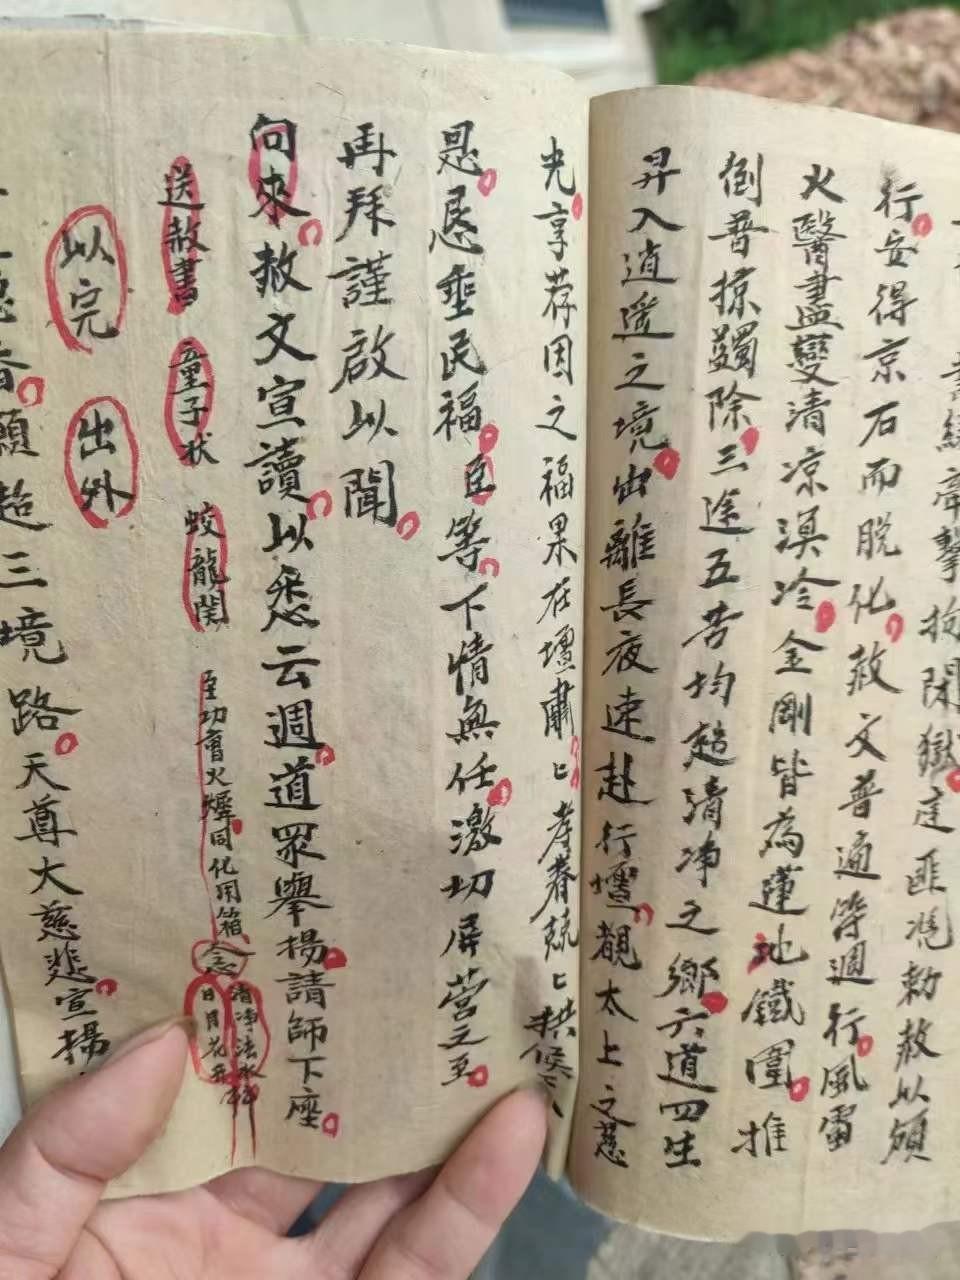 書緣牽擊拘閉獄庭匪馮勅赦以頒
行安得京石而脫化赦文普通等週行風雷
火醫盡變清凉溟冷金剛皆為蓮池鐵圍推
倒普掠蠲除三途五苦均超清净之鄉六道四生
昇入逍遥之境出離長夜速赴行壇覩太上之慈
光享荐因之福果在壇肅匕孝眷兢匕拱候
恩恳垂民福臣等下情無任激切屏营之至
再拜謹啟以聞
向來赦文宣讀以悉云週道眾舉揚請師下座
送赦書 童子状 蛟龍関 至功會火燁同化用箱念
清净法水
日月花开
以完 出外
香願超三境路天尊大慈悲宣揚